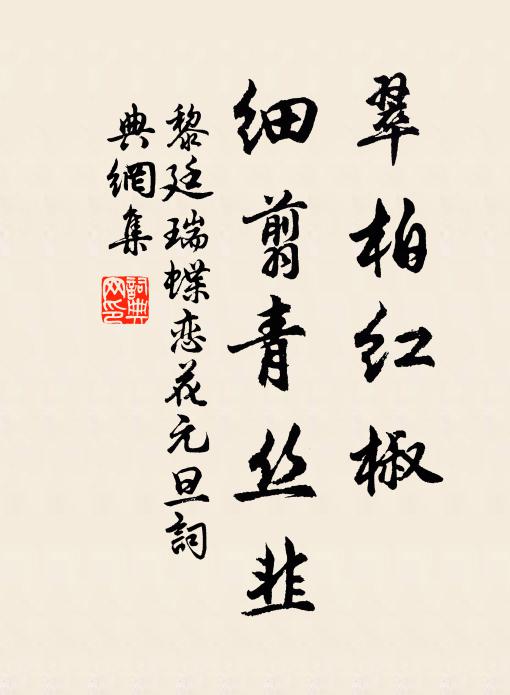 翠柏红椒
细翦青丝韭
黎廷瑞蝶恋花元旦詞
典網集
詞典网印